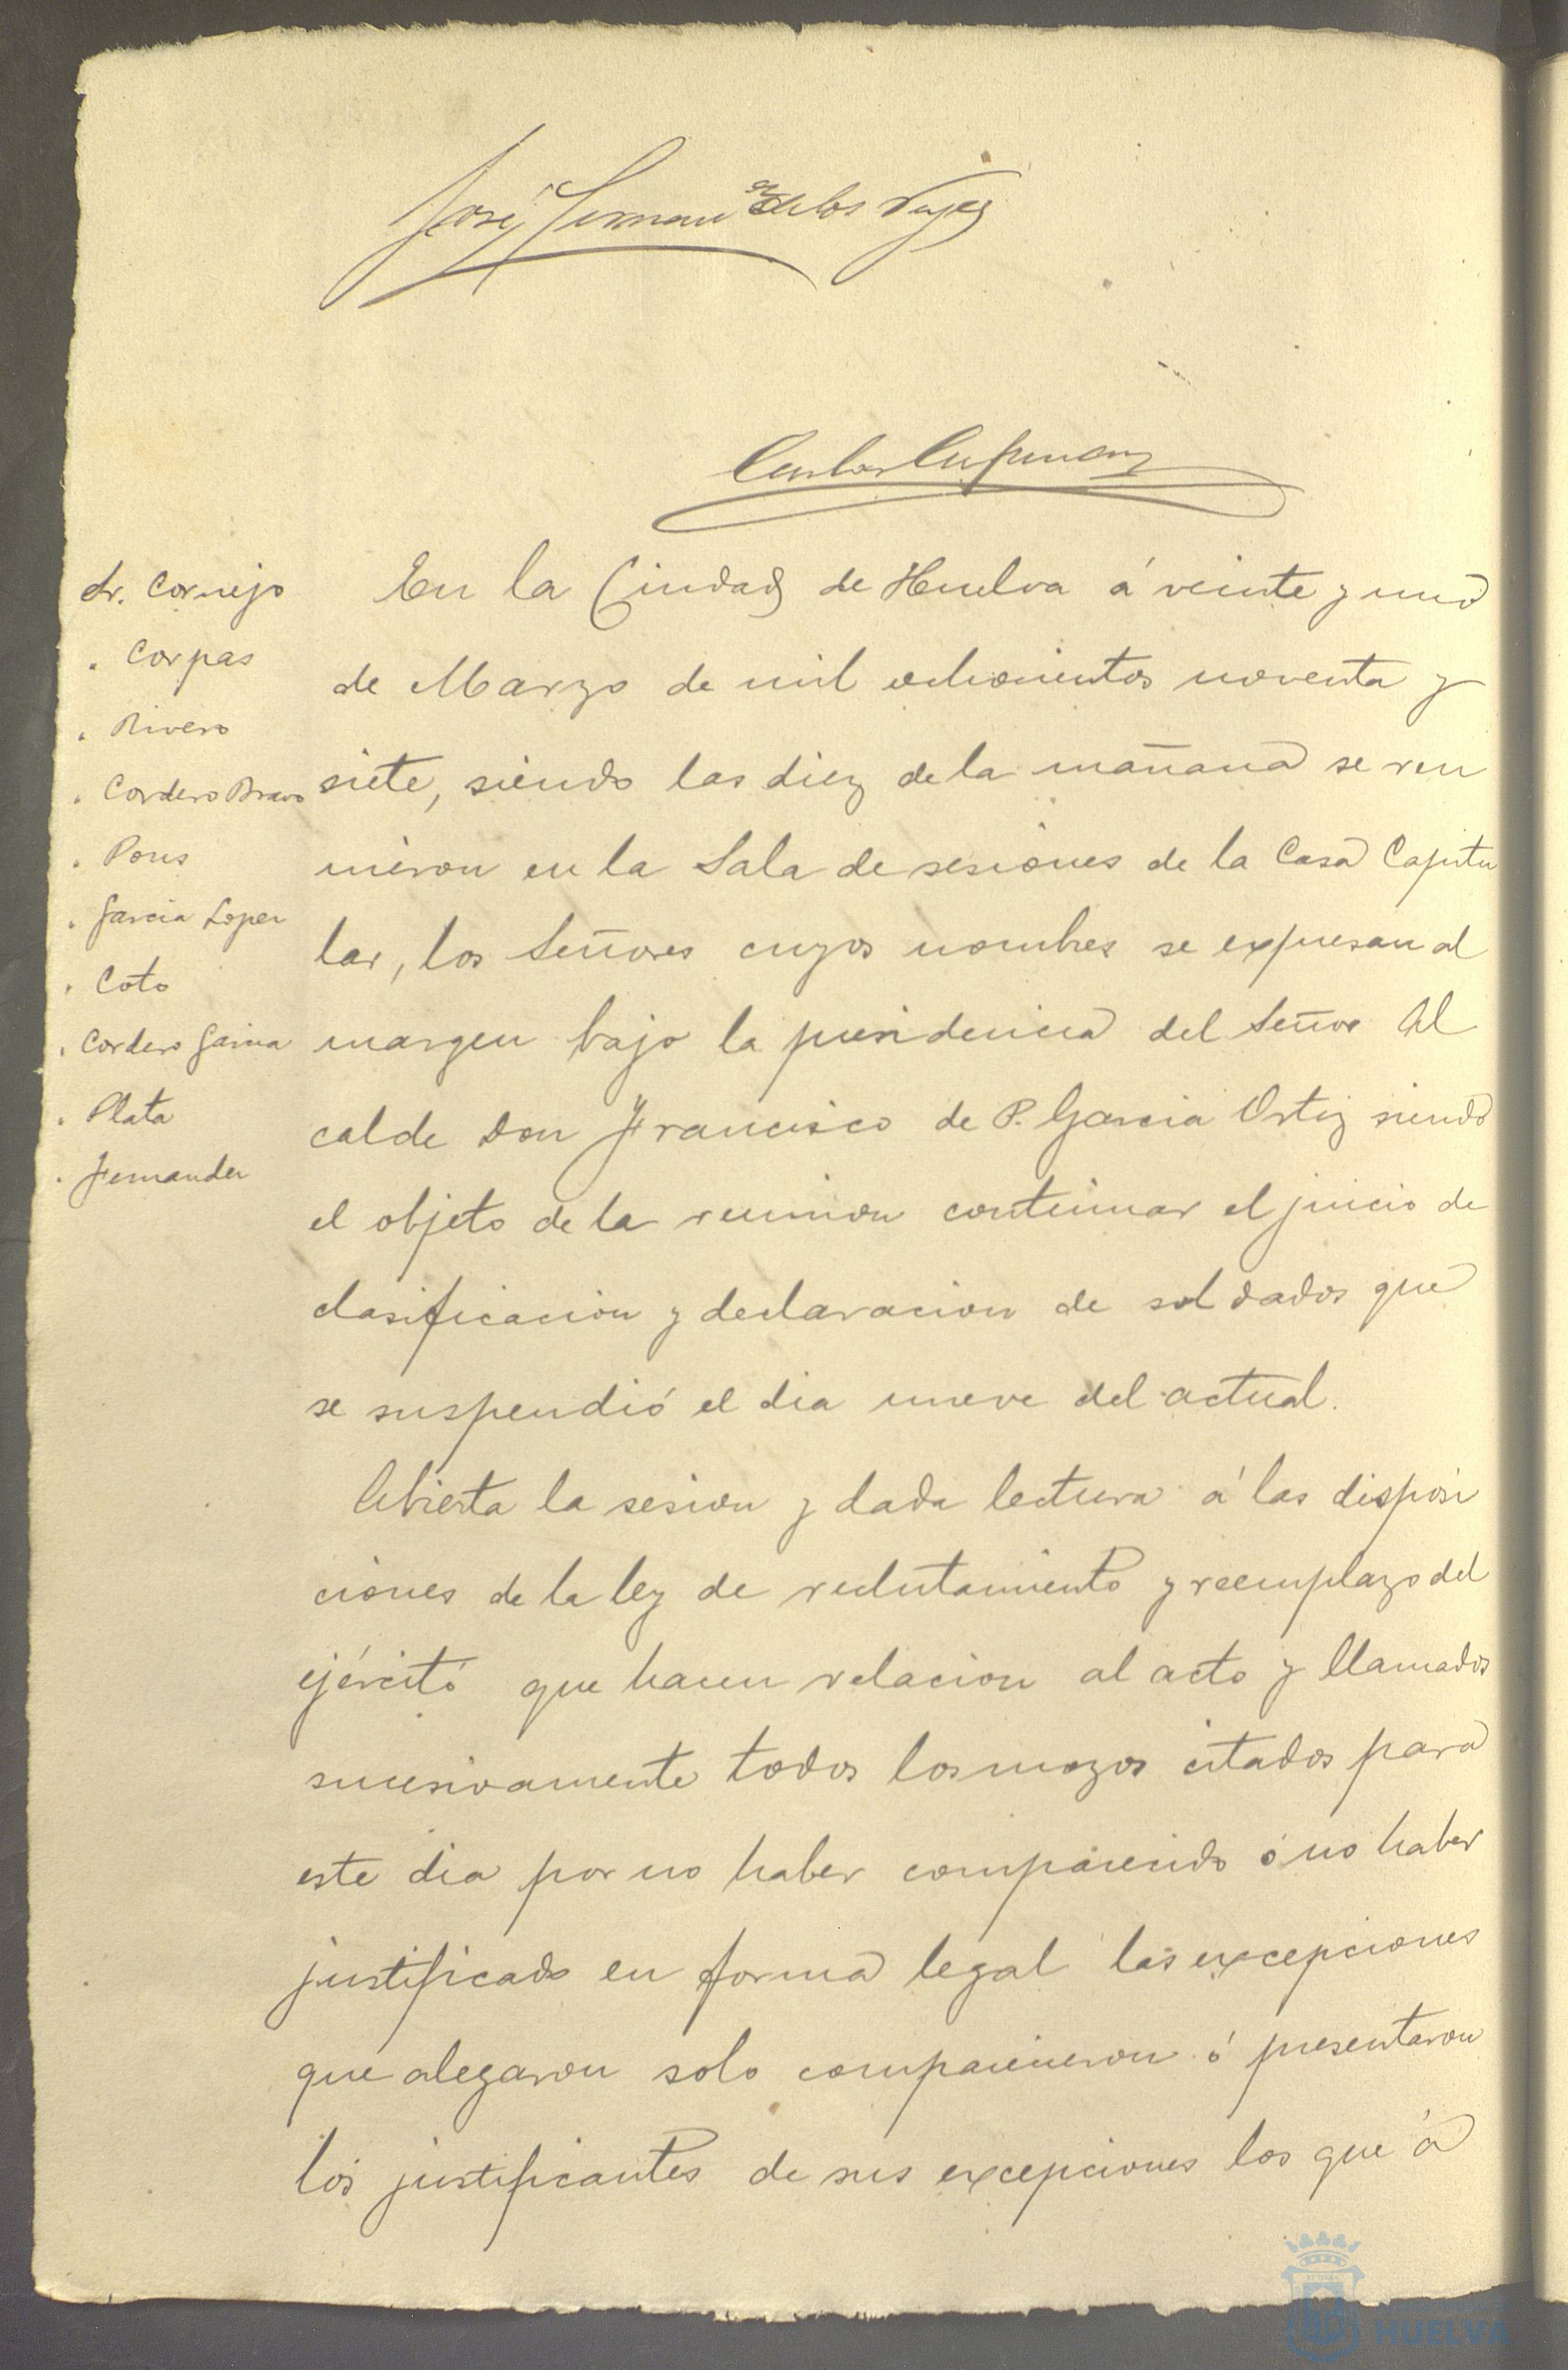 José Fernandez de los Reyes
Carlos
Sr. Cornejo
" Corpas
" Rivero
" Cordero Bravo
" Pons
" Garcia Lopez
" Coto
" Cordero Garcia
" Plata
" Fernandez
En la Ciudad de Huelva á veinte y uno
de Marzo de mil ochocientos noventa y
siete, siendo las diez de la mañana se reu
nieron en la Sala de sesiones de la Casa Capitu
lar, los Señores cuyos nombres se expresan al
margen bajo la presidencia del Señor Al
calde Don Francisco de P. Garcia Ortiz siendo
el objeto de la reunion continuar el juicio de
clasificacion y declaracion de soldados que
se suspendió el dia nueve del actual.
Abierta la sesion y dada lectura á las disposi
ciones de la ley de reclutamiento y reemplazo del
ejército que hacen relacion al acto y llamados
sucesivamente todos los mozos citados para
este dia por no haber comparecido ó no haber
justificado en forma legal las excepciones
que alegaron solo comparecieron ó presentaron
los justificantes de sus excepciones los que á
HUELVA